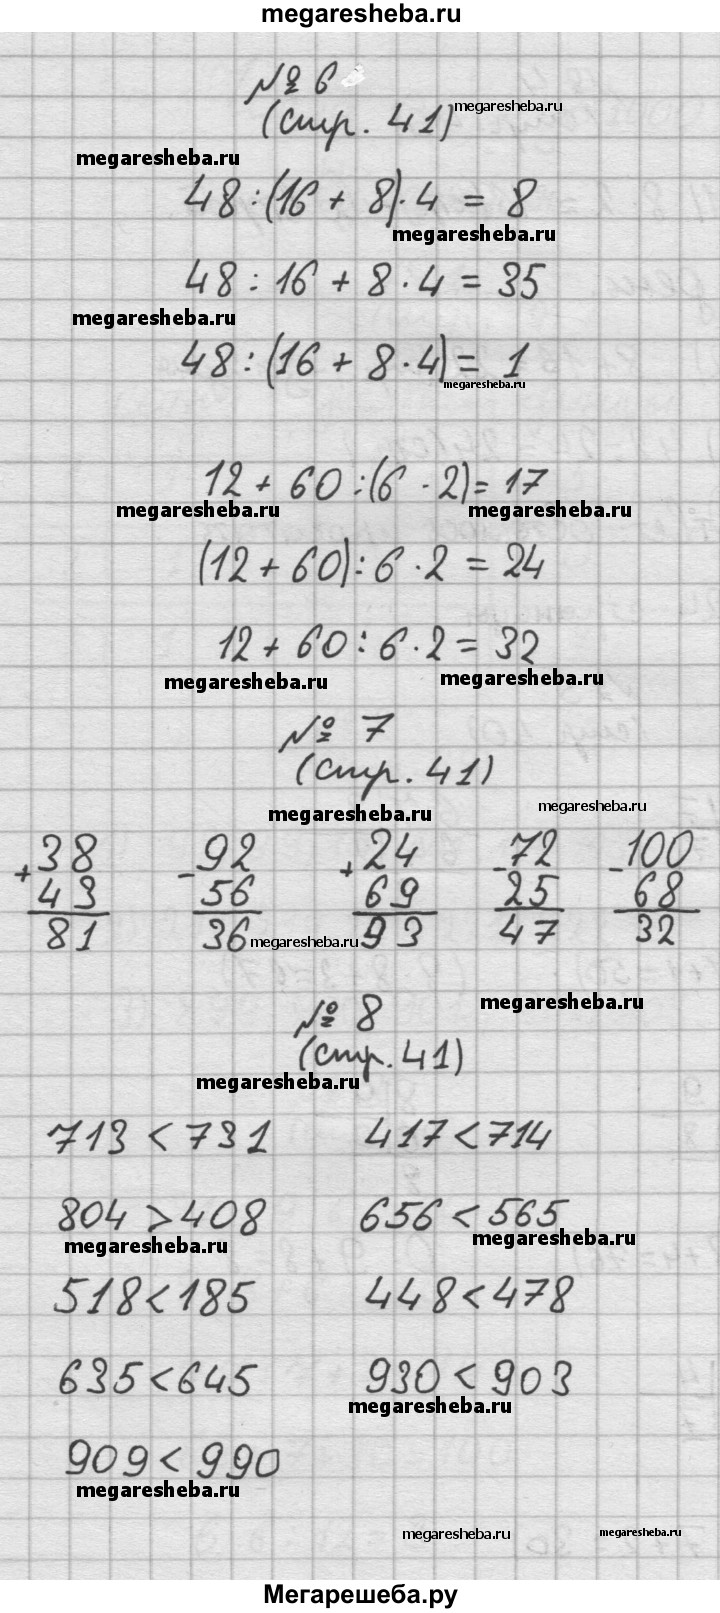 megaresheba.ru
№ 6
(стр. 41)
megaresheba.ru
megaresheba.ru
48:(16 + 8)·4 = 8
megaresheba.ru
48 : 16 + 8 · 4 = 35
megaresheba.ru
48:(16 + 8·4) = 1
megaresheba.ru
12 + 60 :(6 · 2)= 17
megaresheba.ru megaresheba.ru
(12 + 60) : 6 · 2 = 24
12 + 60 : 6 · 2 = 32
megaresheba.ru megaresheba.ru
№ 7
(стр. 41)
megaresheba.ru megaresheba.ru
+38 -92 +24 -72 -100
43 56 69 25 68
81 36 93 47 32
megaresheba.ru
megaresheba.ru
№ 8
(стр. 41)
megaresheba.ru
713 < 731 417 < 714
804 > 408 656 < 565
megaresheba.ru megaresheba.ru
518 < 185 448 < 478
635 < 645 930 < 903
megaresheba.ru
909 < 990
megaresheba.ru
megaresheba.ru megaresheba.ru
Мегарешеба.ру